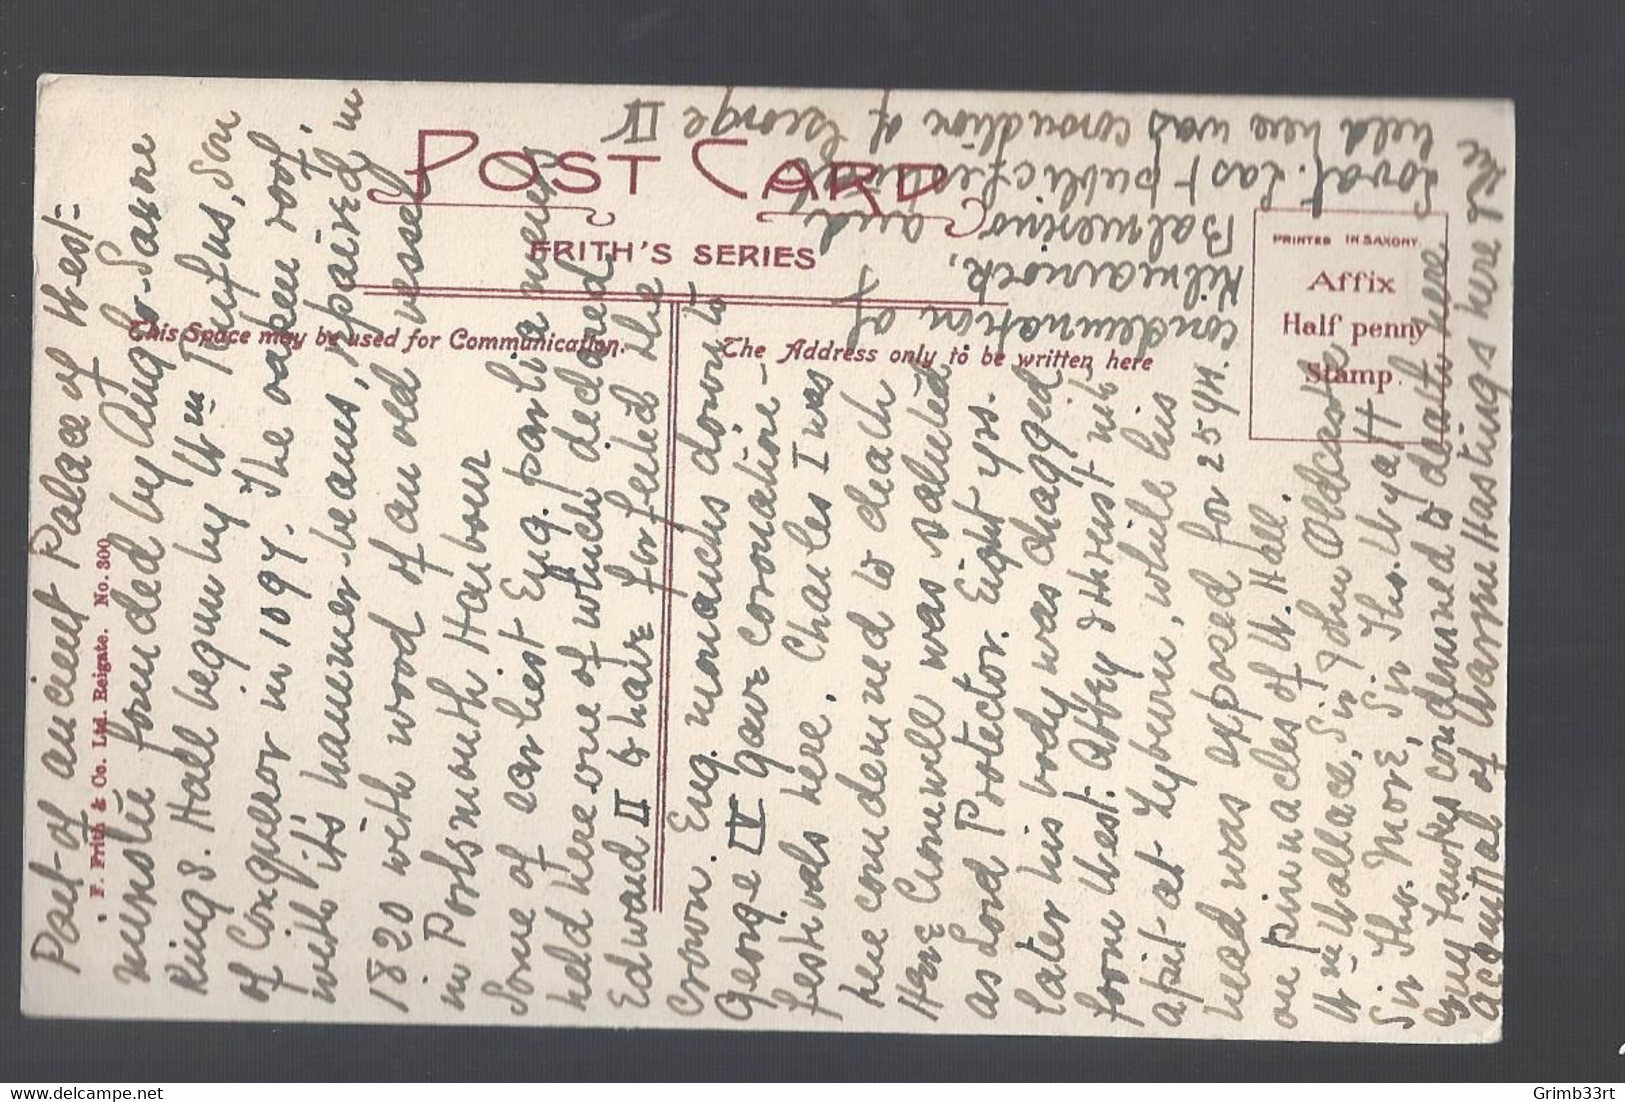 POST CARD
FRITH'S SERIES
This Space may be used for Communication.
The Address only to be written here
PRINTED IN SAXONY
Affix
Half penny
Stamp.
F. Frith & Co. Ltd. Reigate. No. 300
Part of ancient Palace of West-
minster founded by Anglo-Saxone
Kings. Hall begun by Wm Rufus, Son
of Conqueror in 1097. The oaken roof,
with it's hammer-beams, repaired in
1820 with wood of an old vessel
in Portsmouth Harbour
Some of earliest Eng. parliaments
held here one of which declared
Edward II to have forfeited the
Crown. Eng. monarchs down to
George IV gave coronation-
festivals here. Charles I was
here condemned to death
Here Cromwell was saluted
as Lord Protector. Eight yrs.
later his body was dragged
from West. Abbey & thrust into
a pit at Tyburn, while his
head was exposed for 25 yrs.
one pinnacles of W. Hall.
Wm Wallace, Sir John Oldcastle
Sir Tho. More, Sir Tho. Wyatt
Guy Fawkes condemned to death here
acquittal of Warren Hastings here & the
condemnation of
Kilmarnock,
Balmerino and
Lovat. Last public festival
held here was coronation of George IV